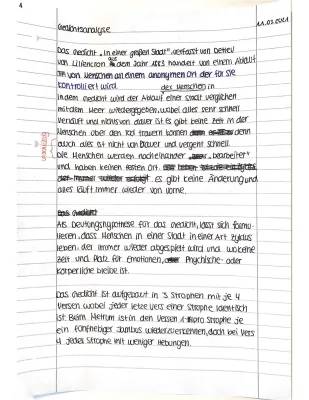 4
Gedichtsanalyse
11.03.2021
Das Gedicht "In einer großen Stadt" verfasst von Detlev
von Liliencron aus dem Jahr 1883 handelt von einem Ablauf
von Menschen an einem anonymen Ort der für sie
kontrolliert wird.
der Menschen in
In dem Gedicht wird der Ablauf einer Stadt verglichen
mit dem Meer wiedergegeben, wobei alles sehr schnell
verläuft und nichts von dauer ist. Es gibt keine Zeit in der
Menschen über den Tod trauern können denn
auch alles ist nicht von Dauer und vergeht schnell.
Die Menschen werden nacheinander "bearbeitet"
und haben keinen festen Ort.
es gibt keine Änderung und
alles läuft immer wieder von vorne.
Das Gedicht
Als Deutungshypothese für das Gedicht, lässt sich formu-
lieren, dass Menschen in einer Stadt in einer Art Zyklus
leben, der immer wieder abgespielt wird und wo keine
Zeit und Platz für Emotionen, Psychische- oder
körperliche bleibe ist.
Das Gedicht ist aufgebaut in 3 Strophen mit je 4
Versen wobei jeder letze vers einer Strophe identisch
ist. Beim Metrum ist in den Versen pro Strophe je
ein fünfhebiger Jambus wiederzuerkennen, doch bei Vers
4 jedes Strophe mit weniger Hebungen.